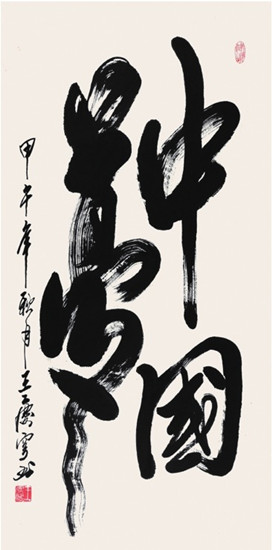 中國
夢
甲午年秋月王